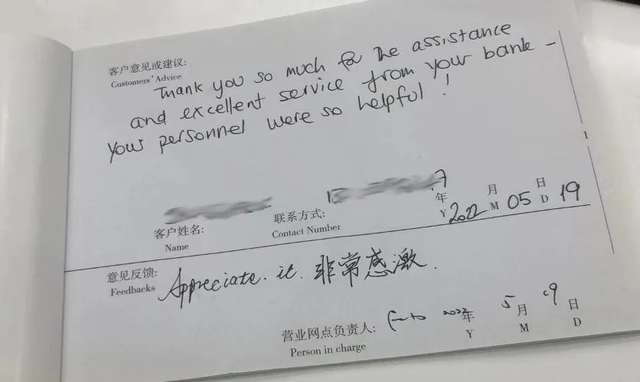 客户意见或建议:
Customers' Advice
Thank you so much for the assistance
and excellent service from your bank –
your personnel were so helpful!
客户姓名:
Name
联系方式:
Contact Number
年 月 日
Y 2022 M 05 D 19
意见反馈:
Feedbacks
Appreciate it. 非常感激.
营业网点负责人: 2022年 5月 19日
Person in charge Y M D